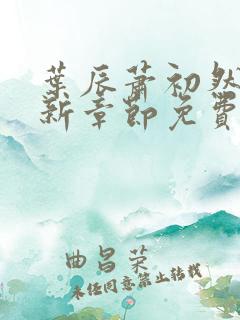 葉辰蕭初然
新章節免費
曲昌荣
未经同意禁止转载